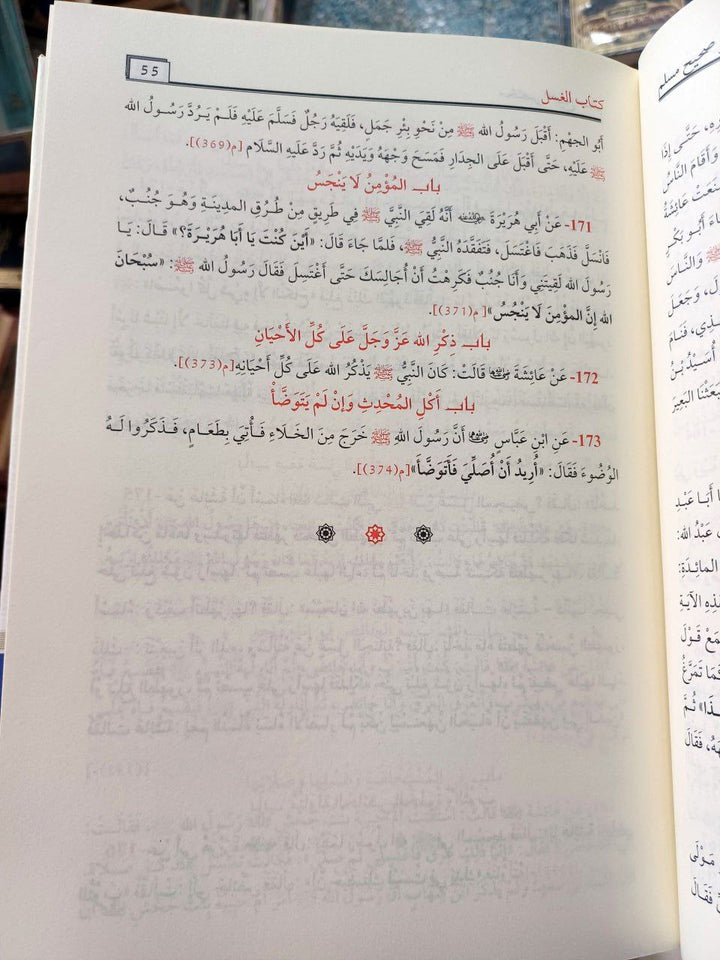 55
كتاب الغسل
أَبُو الجهْمِ: أَقْبَلَ رَسُولُ الله ﷺ مِنْ نَحْوِ بِئْرِ جَمَلٍ، فَلَقِيَهُ رَجُلٌ فَسَلَّمَ عَلَيْهِ فَلَمْ يَرُدَّ رَسُولُ الله
ﷺ عَلَيْهِ، حَتَّى أَقْبَلَ عَلَى الْجِدَارِ فَمَسَحَ وَجْهَهُ وَيَدَيْهِ ثُمَّ رَدَّ عَلَيْهِ السَّلَام [م(369)].
باب المُؤْمِنُ لَا يَنْجُسُ
171- عَنْ أَبِي هُرَيْرَةَ رضي الله عنه أَنَّهُ لَقِيَ النَّبِيَّ ﷺ فِي طَرِيقٍ مِنْ طُرُقِ المدِينَةِ وَهُوَ جُنُبٌ،
فَانْسَلَّ فَذَهَبَ فَاغْتَسَلَ، فَتَفَقَّدَهُ النَّبِيُّ ﷺ، فَلَمَّا جَاءَ قَالَ: «أَيْنَ كُنْتَ يَا أَبَا هُرَيْرَةَ؟» قَالَ: يَا
رَسُولَ الله لَقِيتَنِي وَأَنَا جُنُبٌ فَكَرِهْتُ أَنْ أُجَالِسَكَ حَتَّى أَغْتَسِلَ فَقَالَ رَسُولُ الله ﷺ: «سُبْحَانَ
الله إِنَّ المؤْمِنَ لَا يَنْجُسُ» [م(371)].
باب ذِكْرِ الله عَزَّ وَجَلَّ عَلَى كُلِّ الأَحْيَانِ
172- عَنْ عَائِشَةَ رضي الله عنها قَالَتْ: كَانَ النَّبِيُّ ﷺ يَذْكُرُ الله عَلَى كُلِّ أَحْيَانِهِ[م(373)].
باب أَكْلِ المُحْدِثِ وَإِنْ لَمْ يَتَوَضَّأْ
173- عَنِ ابْنِ عَبَّاسٍ رضي الله عنهما أَنَّ رَسُولَ اللهِ ﷺ خَرَجَ مِنَ الْخَلَاءِ فَأُتِيَ بِطَعَامٍ، فَذَكَرُوا لَهُ
الوُضُوءَ فَقَالَ: «أُرِيدُ أَنْ أُصَلِّيَ فَأَتَوَضَّأَ»[م(374)].
صحيح مسلم
حَتَّى إِذَا
وَأَقَامَ النَّاسُ
عَائِشَةُ
أَبُو بَكْرٍ
وَالنَّاسُ
وَجَعَلَ
فَنَامَ
أُسَيْدُ بْنُ
الْبَعِيرَ
أَبَا عَبْدِ
عَبْدُ الله:
المائِدَةِ:
الآيَةِ
قَوْلَ
تَمَرَّغُ
ثُمَّ
فَقَالَ
مَوْلَى
فَقَالَ